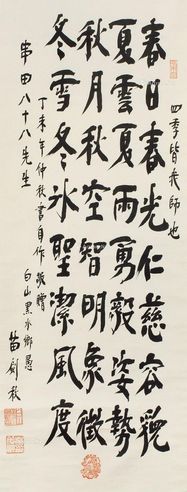 四季皆我師也
春日春光仁慈容貌
夏雲夏雨勇毅姿勢
秋月秋空智明象徵
冬雪冬氷聖潔風度
丁未年仲秋書自作敬贈
串田八十八先生
白山黑水鄉愚
苗劍秋